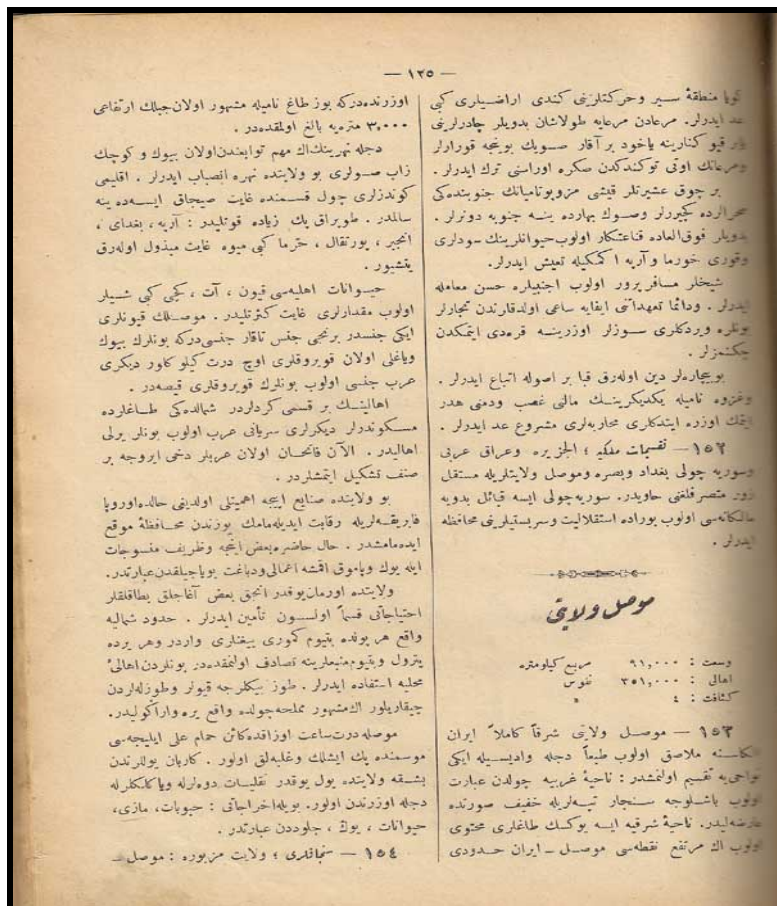 — ١٣٥ —
كويا منطقهٔ سير وحركتلرينى كندى اراضيلرى كبى
عد ايدرلر. مرعادن مرعايه طولاشان بدويلر چادرلرينى
بر قيو كنارينه ياخود بر آقار صويك بوينجه قورارلر
ومرعانك اوتى توكندكدن صكره اوراسنى ترك ايدرلر.
بر چوق عشيرتلر قيشى مزوپوتاميانك جنوبنده كى
صحرالرده كچيررلر وصوك بهارده ينه جنوبه دونرلر.
بدويلر فوق العاده قناعتكار اولوب حيوانلرينك سودلرى
وقورى خورما وآرپه اكمكيله تعيش ايدرلر.
شيخلر مسافرپرور اولوب اجنبيلره حسن معامله
ايدرلر. ودائما تعهداتنى ايفايه ساعى اولدقلرندن تجارلر
بونلره ويردكلرى سوزلر اوزرينه قره دى ايتمكدن
چكنمزلر.
بو بيچاره لر دين اوله رق قبا بر اصوله اتباع ايدرلر.
وغزوه ناميله يكديكرينك مالنى غصب ودمنى هدر
ايتمك اوزره ايتدكلرى محاربه لرى مشروع عد ايدرلر.
١٥٢ — تقسيمات ملكيه ؛ الجزيره وعراق عربى
وسوريه چولى بغداد وبصره وموصل ولايتلريله مستقل
زور متصرفلغنى حاويدر. سوريه چولى ايسه قبائل بدويه
مالكانه سى اولوب بوراده استقلاليت وسربستيلرينى محافظه
ايدرلر.
موصل ولايتى
وسعت : ٩١,٠٠٠ مربع كيلومتره
اهالى : ٣٥١,٠٠٠ نفوس
كثافت : ٤ »
١٥٣ — موصل ولايتى شرقاً كاملاً ايران
الكاسنه ملاصق اولوب طبعاً دجله واديسيله ايكى
نواحى يه تقسيم اولنمشدر : ناحيهٔ غربيه چولدن عبارت
اولوب باشلوجه سنجار تپه لريله خفيف صورتده
عارضه ليدر. ناحيهٔ شرقيه ايسه يوكسك طاغلرى محتوى
اولوب اك مرتفع نقطه سى موصل ـ ايران حدودى
اوزرنده دركه بوز طاغ ناميله مشهور اولان جبلك ارتفاعى
٣,٠٠٠ متره يه بالغ اولمقده در.
دجله نهرينك اك مهم توابعندن اولان بيوك و كوچك
زاب صولرى بو ولايتده نهره انصباب ايدرلر. اقليمى
كوندزلرى چول قسمنده غايت صيجاق ايسه ده ينه
سالمدر. طوپراق پك زياده قوتليدر : آرپه، بغداى،
انجير، پورتقال، خرما كبى ميوه غايت مبذول اوله رق
يتشيور.
حيوانات اهليه سى قيون، آت، كچى كبى شيلر
اولوب مقدارلرى غايت كثرتليدر. موصلك قيونلرى
ايكى جنسدر برنجى جنس تاقار جنسى دركه بونلرك بيوك
وياغلى اولان قويروقلرى اوچ درت كيلو كلور ديكرى
عرب جنسى اولوب بونلرك قويروقلرى قيصه در.
اهالينك بر قسمى كردلردر شمالده كى طاغلرده
مسكوندرلر ديكرلرى سريانى عرب اولوب بونلر يرلى
اهاليدر. الآن فاتحان اولان عربلر دخى ايروجه بر
صنف تشكيل ايتمشلردر.
بو ولايتده صنايع ايچه اهميتلى اولديغى حالده اوروپا
فابريقه لريله رقابت ايديله مامك يوزندن محافظهٔ موقع
ايده مامشدر. حال حاضرده بعض اينجه وظريف منسوجات
ايله يوك وپاموق اقمشه اعمالى ودباغت بوياجيلقدن عبارتدر.
ولايتده اورمان يوقدر انجق بعض آغاجلق بطاقلقلر
احتياجاتى قسماً اولسون تأمين ايدرلر. حدود شماليه
واقع هر يونده بتيوم كمورى ييغنلرى واردر وهر يرده
پترول وبتيوم منبعلرينه تصادف اولنمقده در بونلردن اهالئ
محليه استفاده ايدرلر. طوز بيكلرجه قيولر وطوزله لردن
چيقاريلور اك مشهور مملحه جولده واقع يره واراكوليدر.
موصله درت ساعت اوزاقده كائن حمام على ايليجه سى
موسمنده پك ايشلك وغلبه لق اولور. كاربان يوللرندن
بشقه ولايتده يول يوقدر نقليات دوه لرله وياكلكلرله
دجله اوزرندن اولور. بويله اخراجاتى : حبوبات، مازى،
حيوانات، يوك، جلوددن عبارتدر.
١٥٤ — سنجاقلرى ؛ ولايت مزبوره : موصل ـ